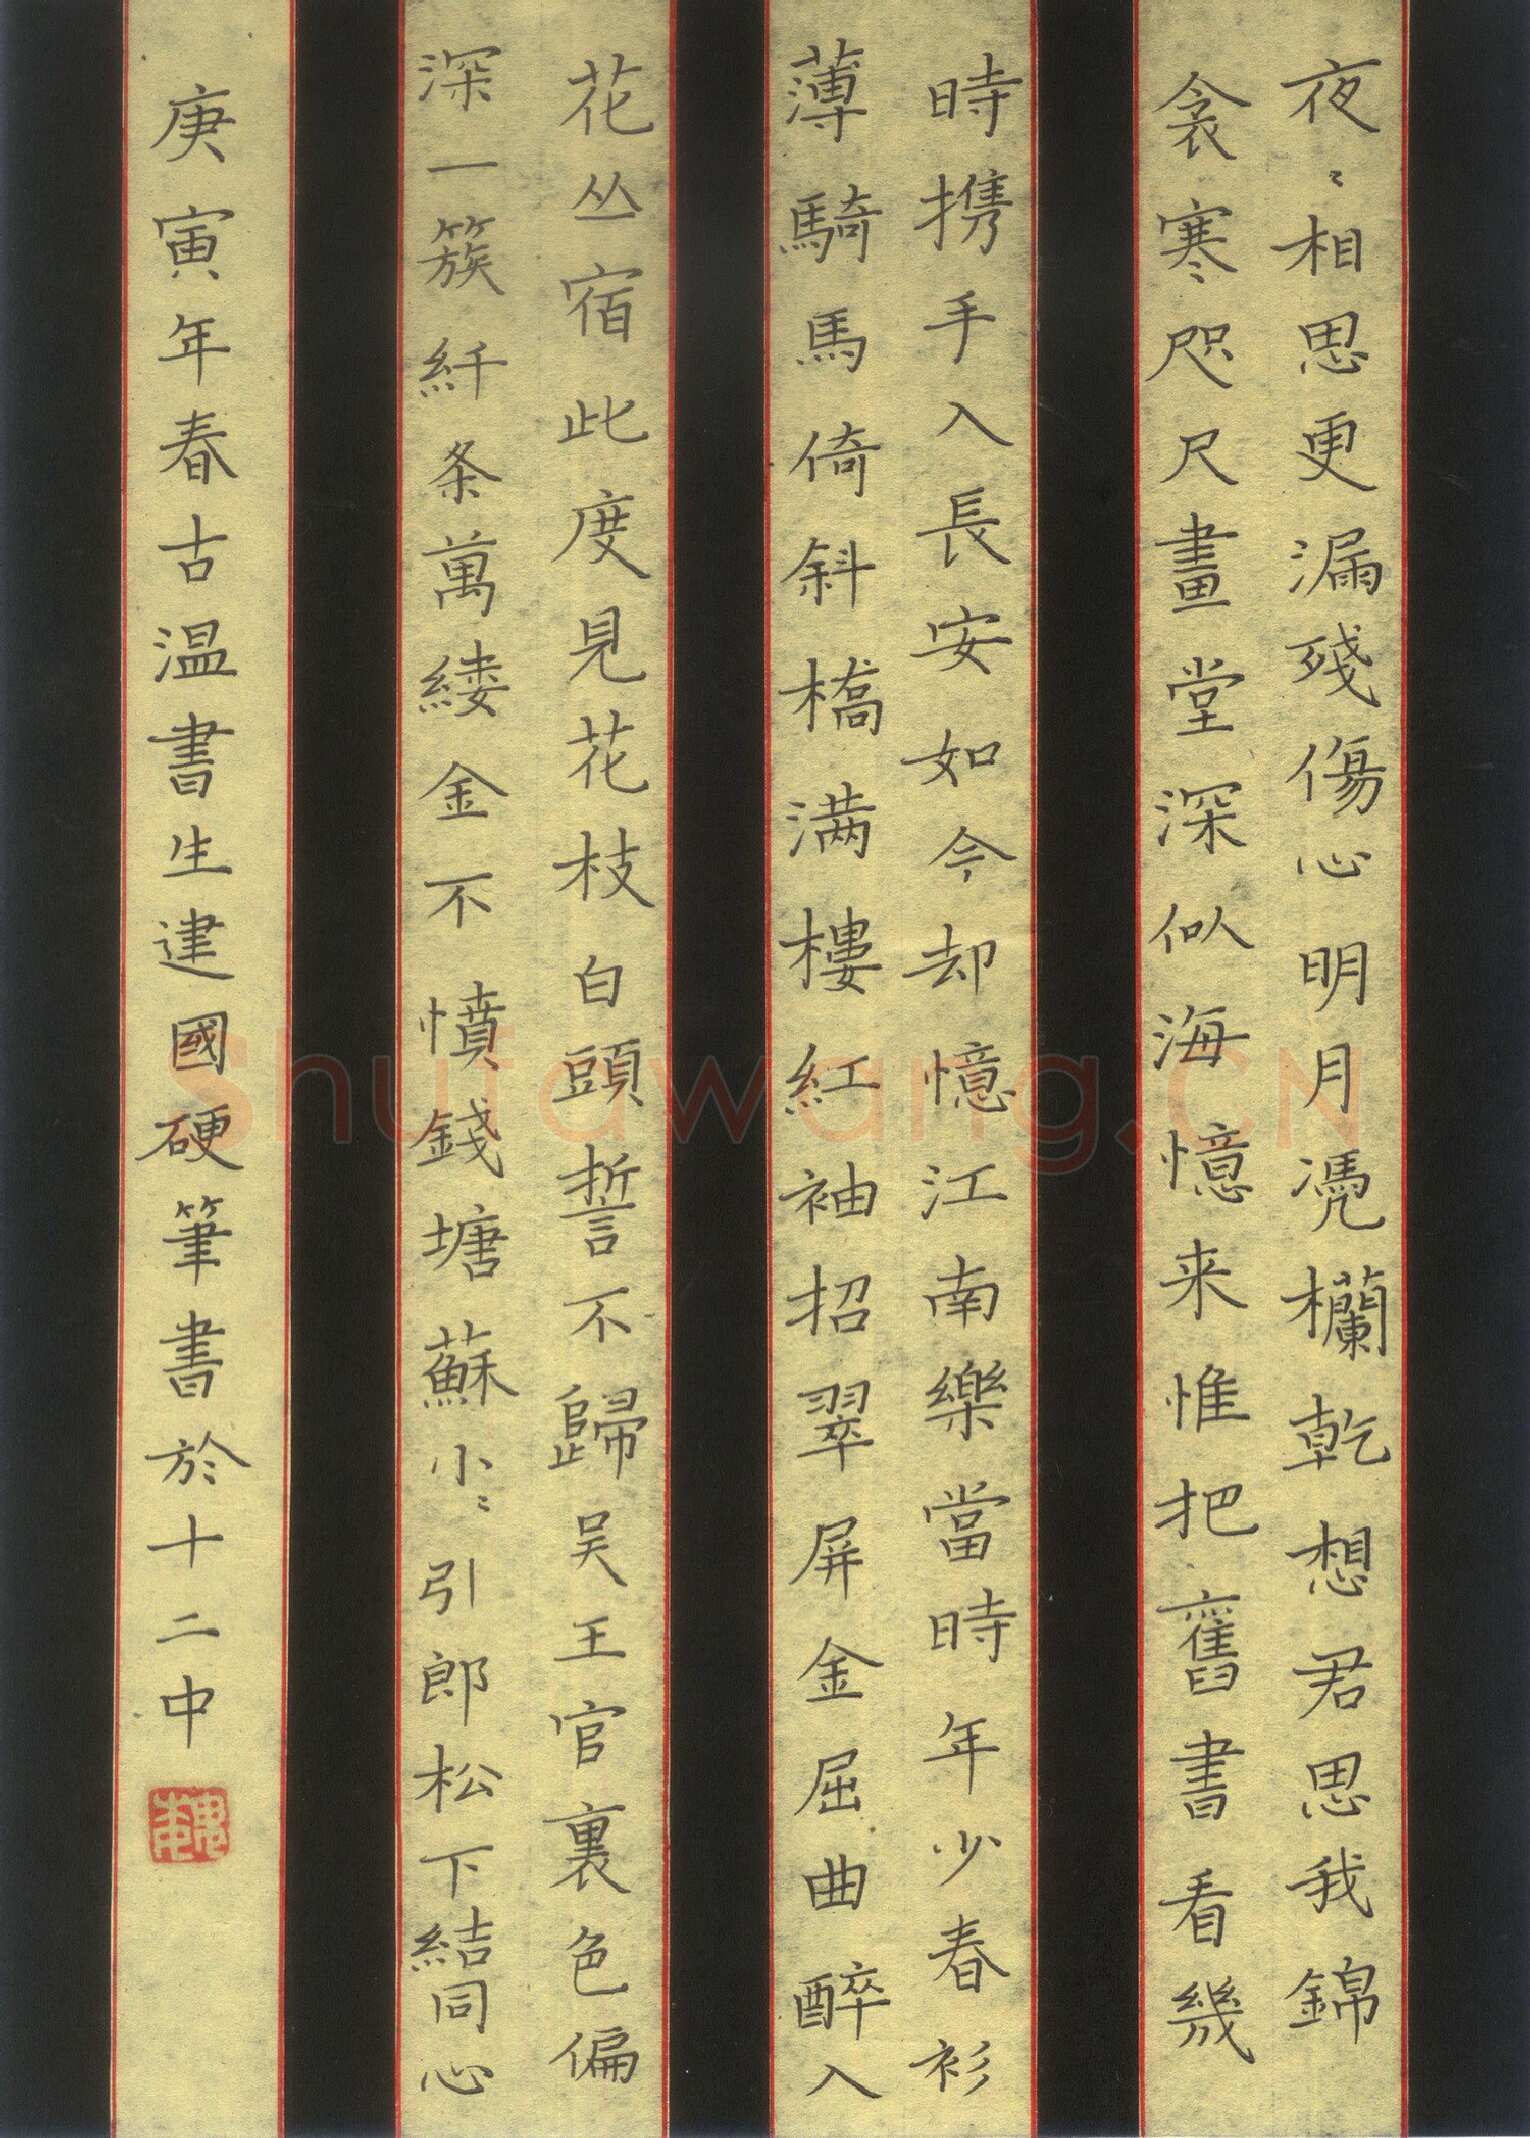 夜〻相思更漏殘傷心明月凴欄乾想君思我錦
衾寒咫尺畫堂深似海憶来惟把舊書看幾
時携手入長安如今却憶江南樂當時年少春衫
薄騎馬倚斜橋满樓紅袖招翠屏金屈曲醉入
花丛宿此度見花枝白頭誓不歸吴王宫裏色偏
深一簇纤条萬縷金不憤錢塘蘇小〻引郎松下結同心
庚寅年春古温書生建國硬筆書於十二中
Shufawang.CN